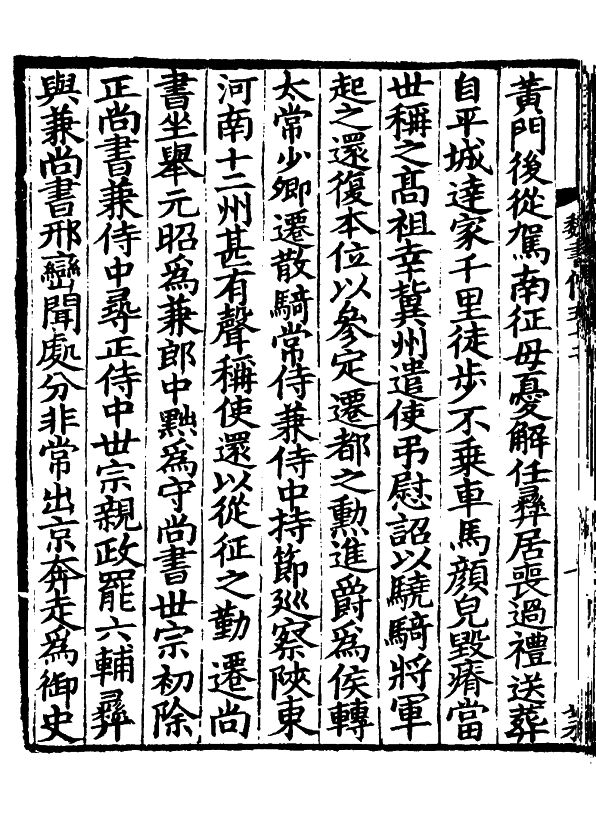 黃門後從駕南征母憂解任彝居喪過禮送葬
自平城達家千里徒步不乗車馬顔皃毀瘠當
世稱之高祖幸冀州遣使弔慰詔以驍騎將軍
起之還復本位以參定遷都之勲進爵爲侯轉
太常少卿遷散騎常侍兼侍中持節巡察陜東
河南十二州甚有聲稱使還以從征之勤遷尚
書坐舉元昭爲兼郎中黜爲守尚書世宗初除
正尚書兼侍中尋正侍中世宗親政罷六輔彝
與兼尚書邢巒聞處分非常出京奔走爲御史
魏書傳五十